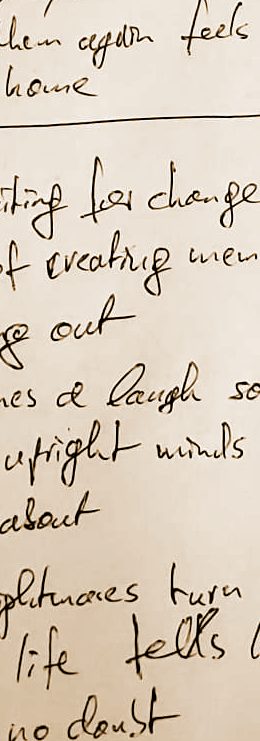 hem again feels
home
iting for change
of creating mem
out
nes a laugh so
upright minds
about
turn
life tells
no doubt